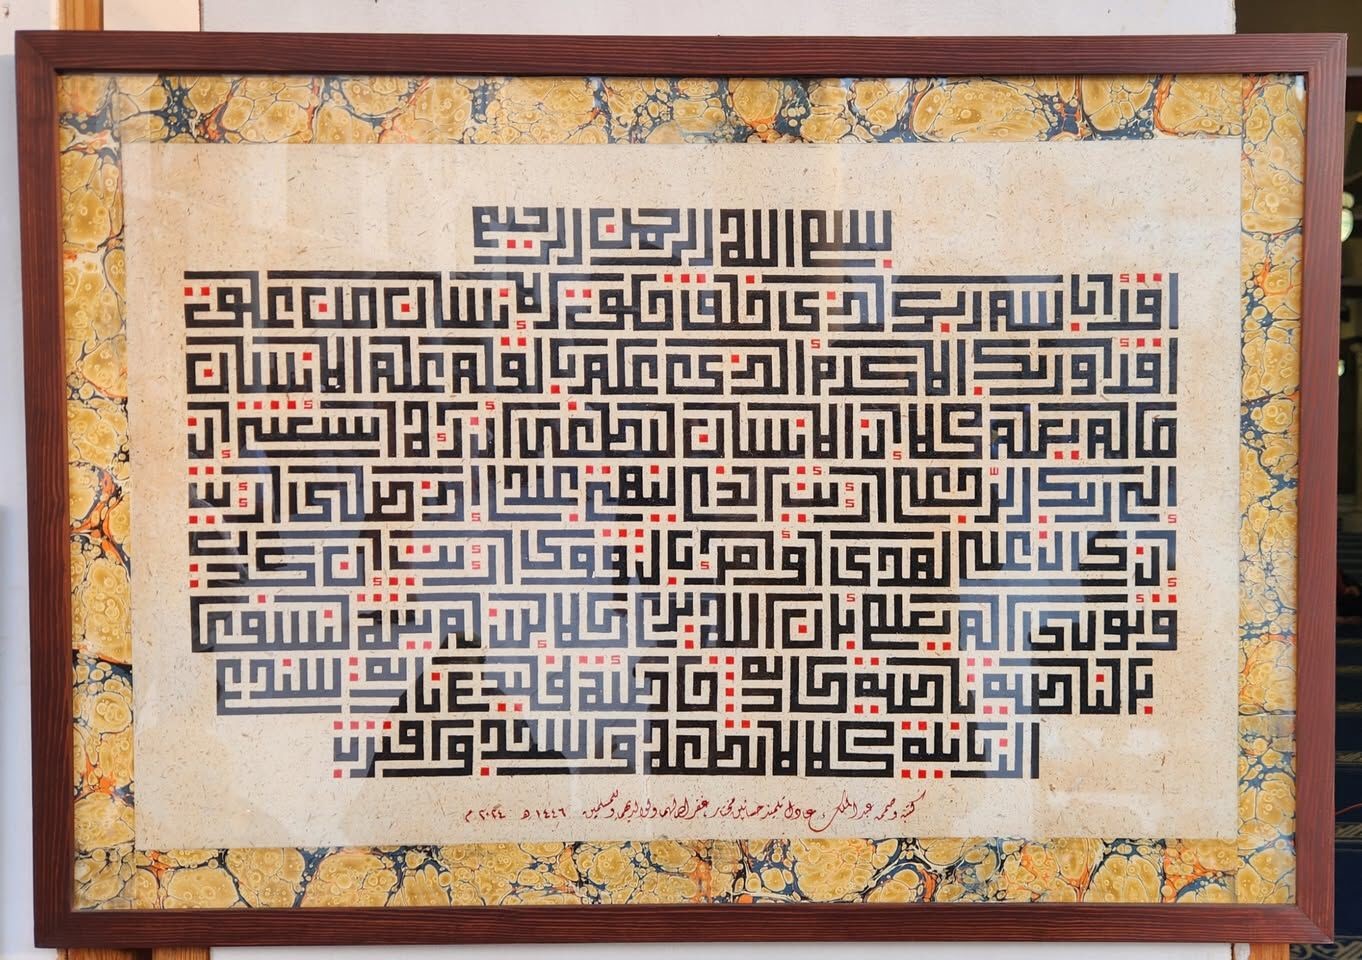 بسم الله الرحمن الرحيم
اقرأ باسم ربك الذي خلق خلق الإنسان من علق
اقرأ وربك الأكرم الذي علم بالقلم علم الإنسان
ما لم يعلم كلا إن الإنسان ليطغى أن رآه استغنى إن
إلى ربك الرجعى أرأيت الذي ينهى عبدا إذا صلى أرأيت
إن كان على الهدى أو أمر بالتقوى أرأيت إن كذب
وتولى ألم يعلم بأن الله يرى كلا لئن لم ينته لنسفعا
بالناصية ناصية كاذبة خاطئة فليدع ناديه سندع
الزبانية كلا لا تطعه واسجد واقترب
كتبه وصممه عبد الملك عادل تلميذ حسانين مختار غفر الله لهما ولوالديهما وللمسلمين ١٤٤٦ هـ ٢٠٢٤ م